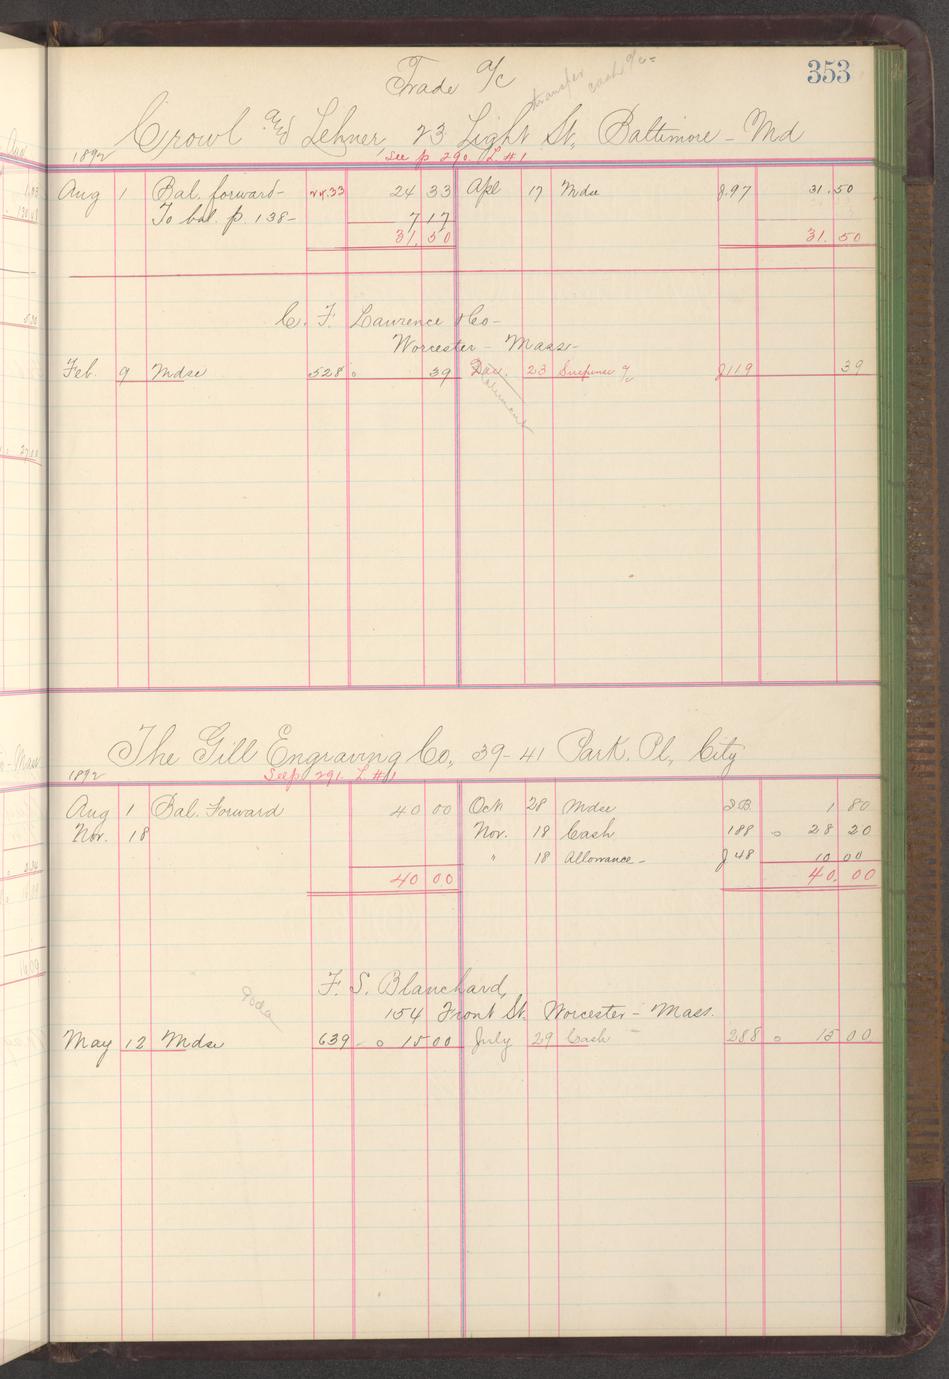 353
Trade a/c
transfer cash a/c
Crowl and Lehner, 23 Light St, Baltimore - Md
1892 See p 290. L #1
Aug 1 Bal. forward- 24.33 24 33 Apl 17 Mdse J.97 31.50
To bal. p. 138- 7 17
31.50 31.50
C. F. Laurence & Co-
Worcester - Mass-
Feb. 9 Mdse 528 39 Dec. 23 Suspense a/c J119 39
The Gill Engraving Co, 39-41 Park. Pl, City
1892 See p 291. L #1
Aug 1 Bal. Forward 40 00 Oct 28 Mdse 1 80
Nov. 18 Nov. 18 Cash 188 28 20
" 18 Allowance- J48 10 00
40 00 40.00
F. S. Blanchard,
154 Front St. Worcester - Mass.
May 12 Mdse 639 15 00 July 29 Cash 288 15 00